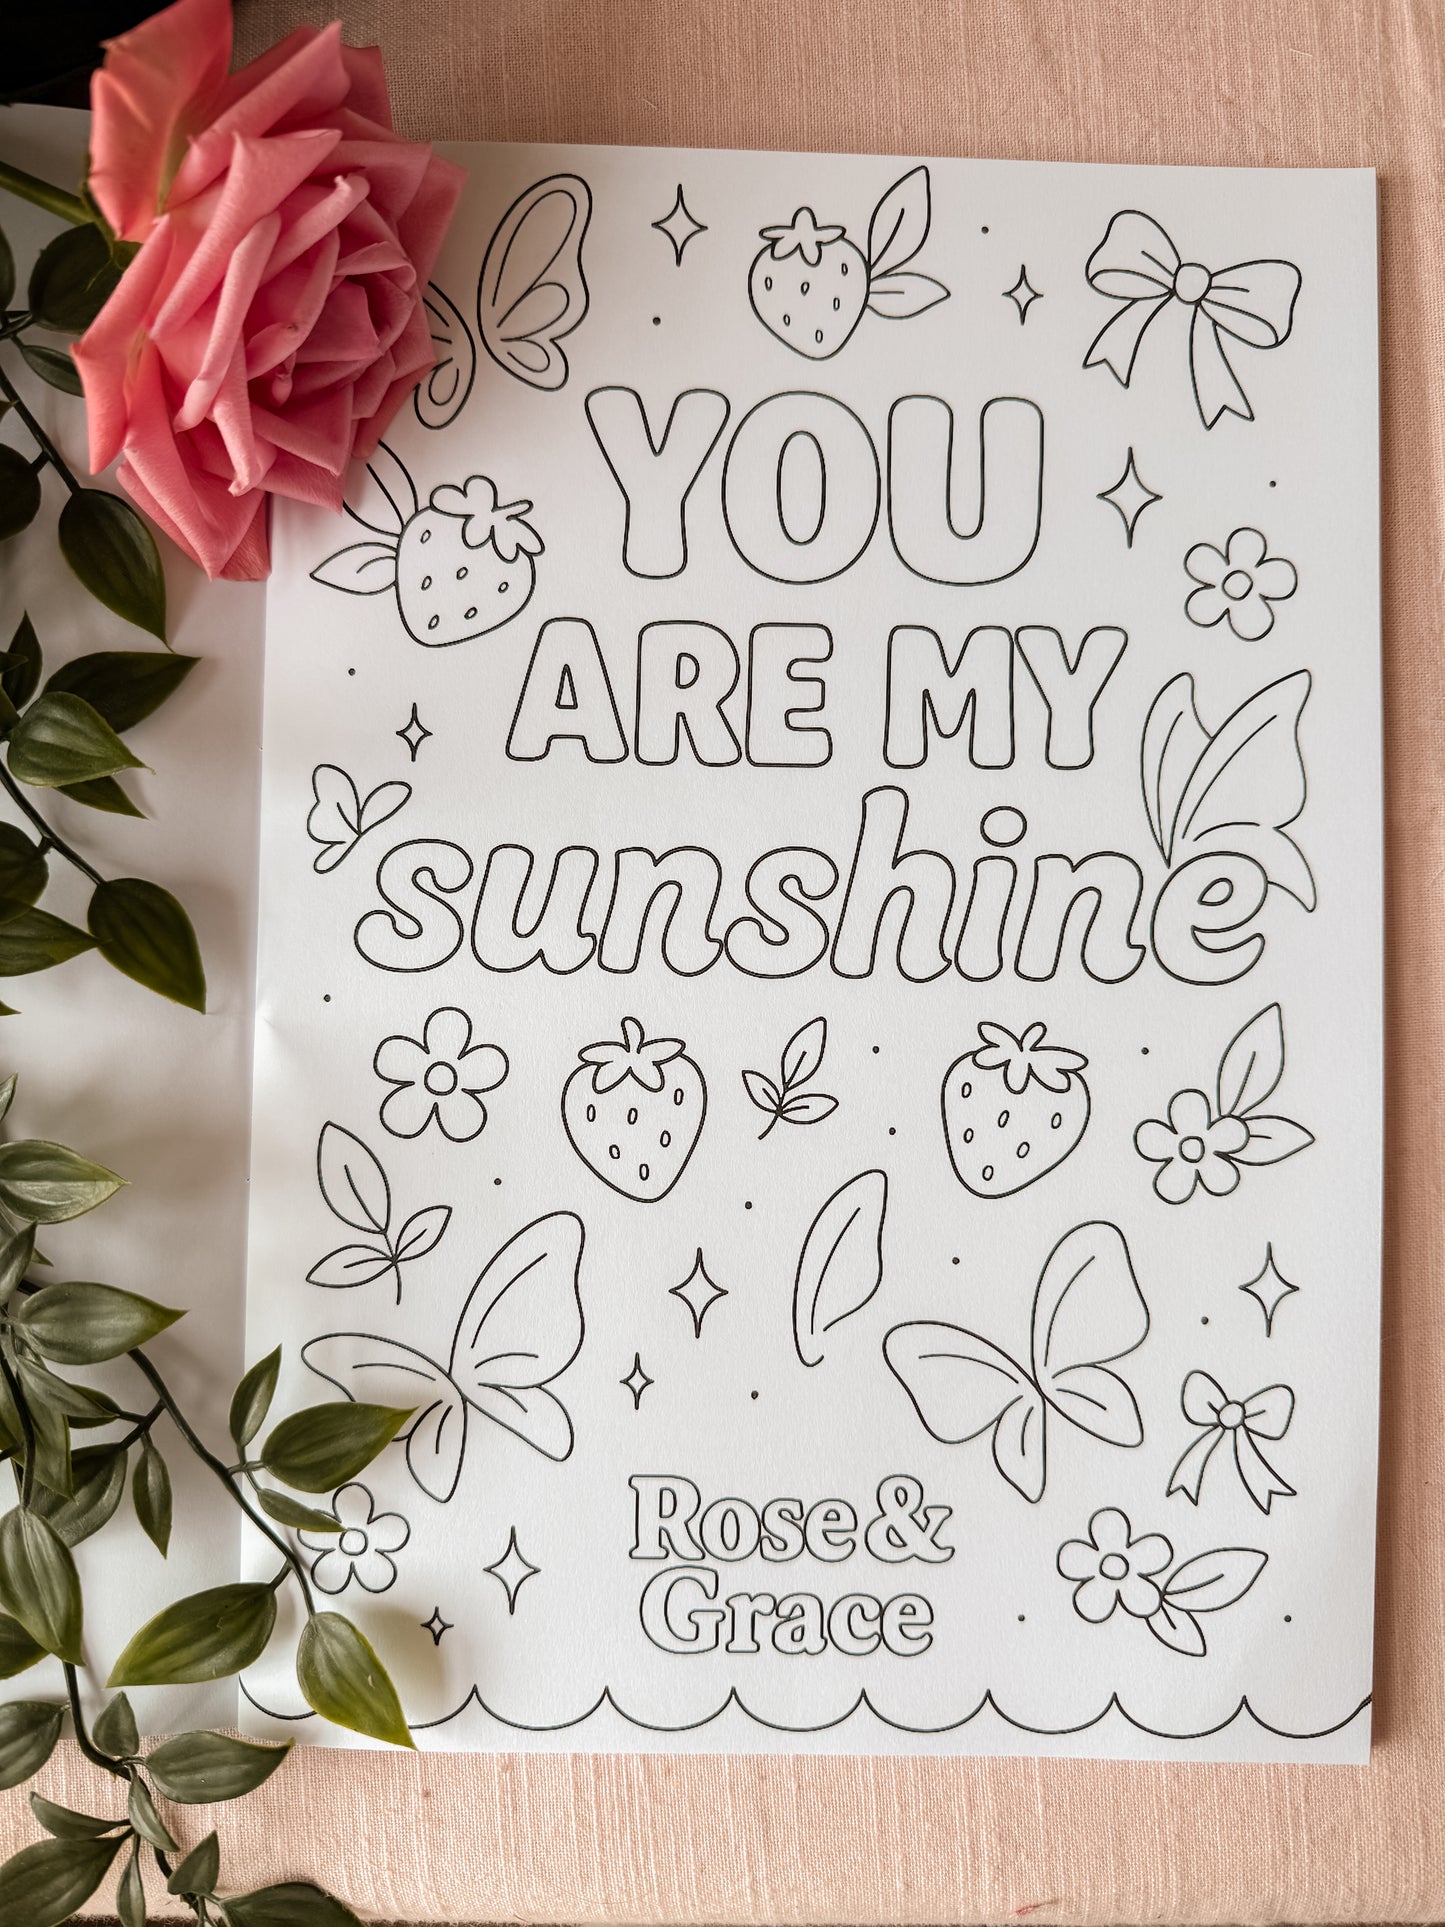 YOU
ARE MY
sunshine
Rose &
Grace